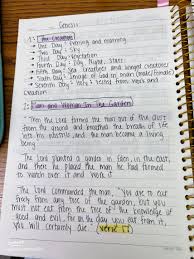 Genesis
1: The Creation
• First Day: Evening and morning
• Second Day: Sky
• Third Day: Vegetation
• Fourth Day: Day, Night, Stars
• Fifth Day: Sea Creatures and winged creatures
• Sixth Day: Image of God in man (male/female)
• Seventh Day: God rested and
Creation!
2: Man and Woman In the Garden
"Then the Lord formed the man out of the dust
from the ground and breathed the breath of life
into his nostrils, and the man became a living
being."
The Lord planted a garden in Eden, in the east,
and then he placed the man he had formed
to watch over it and work it.
The Lord commanded the man, "You are to eat
freely from any tree of the garden, but you
must not eat from the tree of the knowledge of
good and evil, for on the day you eat from it,
you will certainly die." verse 17